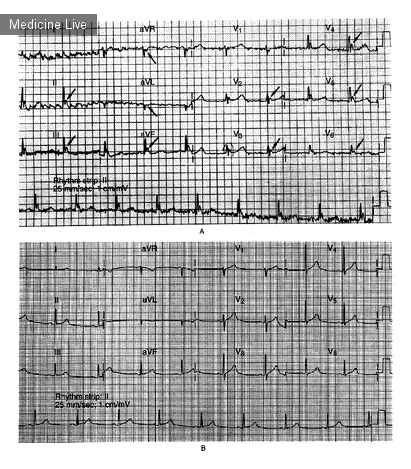 Medicine Live
aVR V₁ V₄
II aVL V₂ V₅
III aVF V₃ V₆
Rhythm strip: II
25 mm/sec; 1 cm/mV
A
I aVR V₁ V₄
II aVL V₂ V₅
III aVF V₃ V₆
Rhythm strip: II
25 mm/sec; 1 cm/mV
B